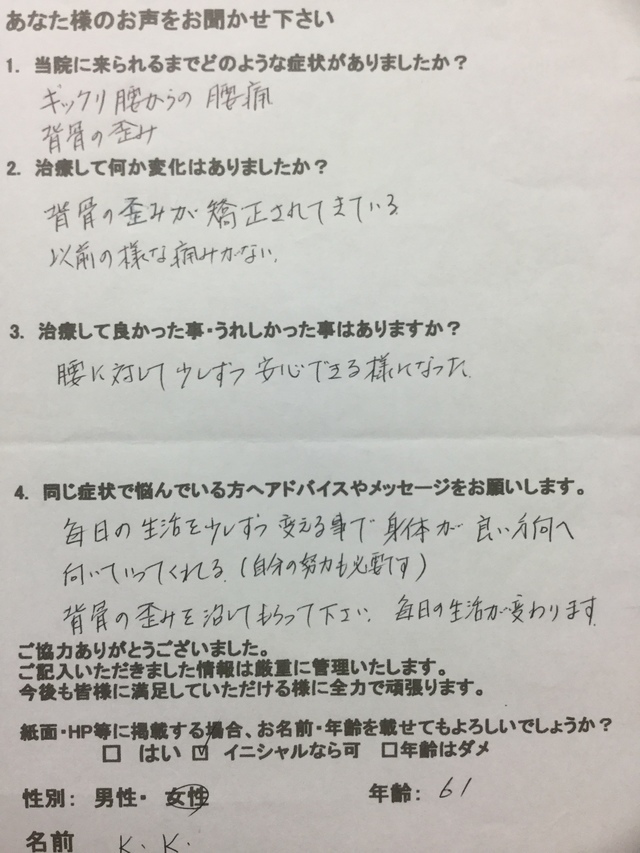 あなた様のお声をお聞かせ下さい
1. 当院に来られるまでどのような症状がありましたか？
ギックリ腰からの腰痛
背骨の歪み
2. 治療して何か変化はありましたか？
背骨の歪みが矯正されてきている
以前の様な痛みがない。
3. 治療して良かった事・うれしかった事はありますか？
腰に対して少しずつ安心できる様になった。
4. 同じ症状で悩んでいる方へアドバイスやメッセージをお願いします。
毎日の生活を少しずつ変える事で身体が良い方向へ
向いていってくれる。(自分の努力も必要です)
背骨の歪みを治してもらって下さい。毎日の生活が変わります。
ご協力ありがとうございました。
ご記入いただきました情報は厳重に管理いたします。
今後も皆様に満足していただける様に全力で頑張ります。
紙面・HP等に掲載する場合、お名前・年齢を載せてもよろしいでしょうか？
□ はい ☑ イニシャルなら可 □年齢はダメ
性別： 男性・ 女性 年齢： 61
名前 K. K.